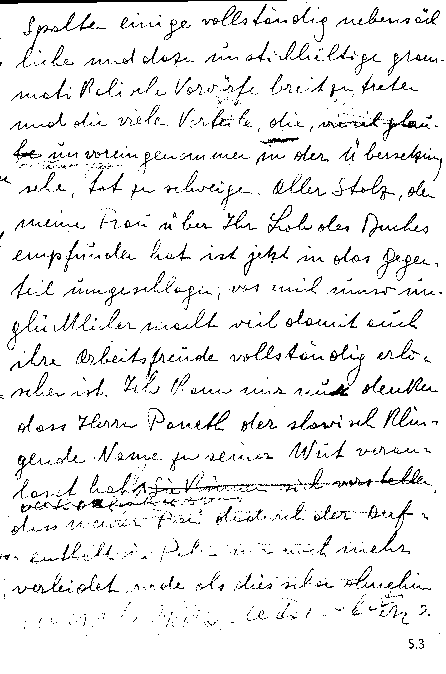 Spalten einige vollständig nebensäch
liche und dazu unstichhältige gram-
matikalische Vorwürfe breit zu treten
und die viele Vorteile, die, weit glau-
be unvoreingenommen in der Übersetzung
sehe, tot zu schweigen. Aller Stolz, den
meine Frau über Ihr Lob des Buches
empfunden hat ist jetzt in das Gegen-
teil umgeschlagen, was mich umso un-
glücklicher macht weil damit auch
ihre Arbeitsfreude vollständig erlo-
schen ist. Ich kann mir nur denken
dass Herrn Paneth der slawisch klin-
gende Name zu seiner Wut veran-
lasst hat. Sie können sich vorstellen,
dass meiner Frau dadurch der Auf-
enthalt in mehr
verleidet wurde als dies schon ohnehin
5.3